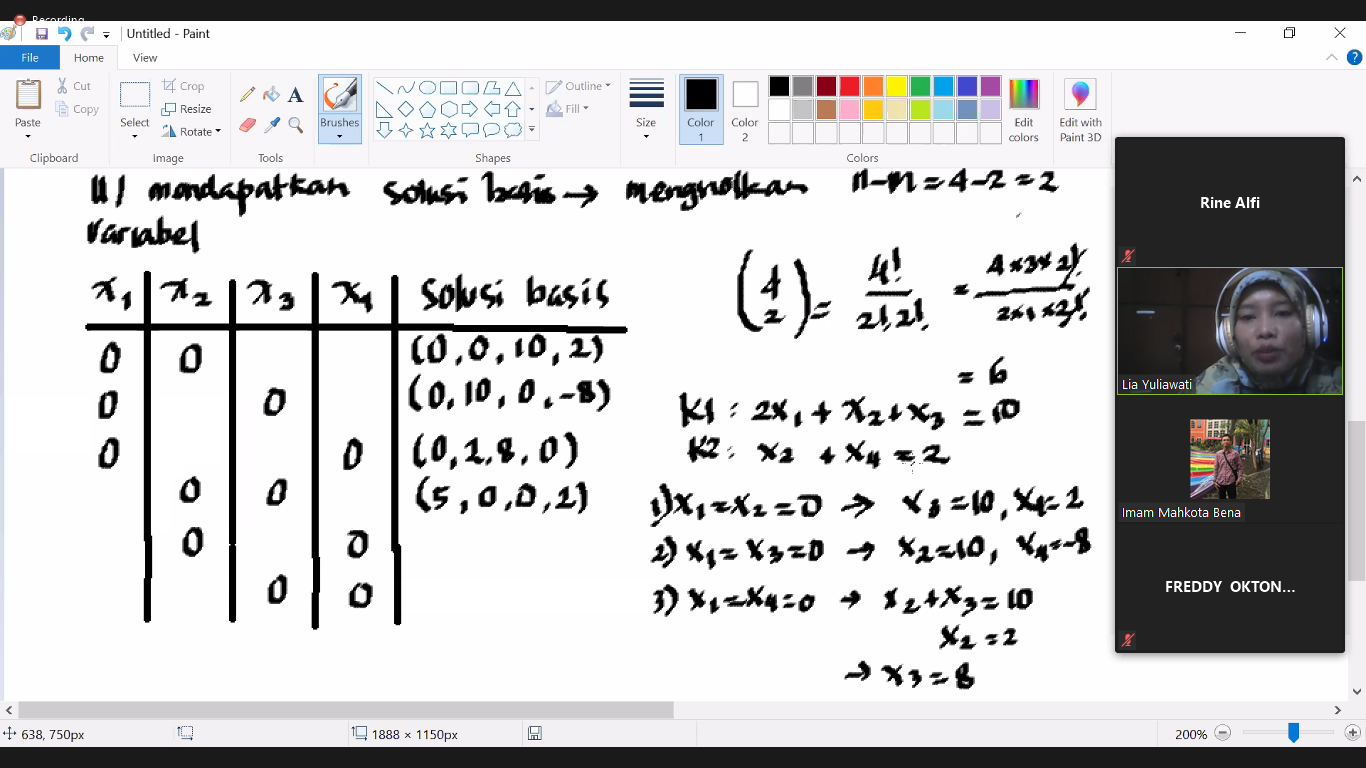 Recording
Untitled - Paint
File Home View
Paste Cut Copy Clipboard
Select Crop Resize Rotate Image
Tools
Brushes
Outline Fill Shapes
Size
Color 1 Color 2 Edit colors Colors
Edit with Paint 3D
U/ mendapatkan solusi basis → mengnolkan n-m = 4-2 = 2
variabel
x₁ x₂ x₃ x₄ Solusi basis
0 0 (0, 0, 10, 2)
0 0 (0, 10, 0, -8)
0 0 (0, 2, 8, 0)
0 0 (5, 0, 0, 2)
0 0
0 0
(4 2) = 4!/2!, 2! = 4×3×2!/2×1×2!
= 6
K1 : 2x₁ + x₂ + x₃ = 10
K2 : x₂ + x₄ = 2
1) x₁ = x₂ = 0 → x₃ = 10, x₄ = 2
2) x₁ = x₃ = 0 → x₂ = 10, x₄ = -8
3) x₁ = x₄ = 0 → x₂ + x₃ = 10
x₂ = 2
→ x₃ = 8
Rine Alfi
Lia Yuliawati
Imam Mahkota Bena
FREDDY OKTON...
638, 750px
1888 × 1150px
200%